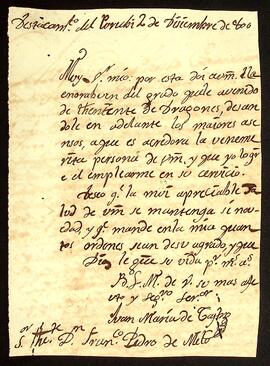 Destacam.to del Poruchi 2 de Diziembre de 800
Muy S.r mio. por esta doi a vm. La
enorabuen del grado q.e ha avenido
de thenente de Dragones, desean
dole en adelante los maiores as
ensos, a que es acredora la veneme
rita persona de vm. y que yo logr
e el emplearme en su cervicio.
Deseo q.e la mui apreciable sa
lud de vm se mantenga si no
dad, y q.e mande en la mia quan
tos ordenes sean de su agrado, y que
Dios le g.e su vida p.r m.s a.s
B. S. M. de v. su mas a
to y seg.ro ser.or
Juan Maria de
S.or The.te D.n Fran.co Pedro de Melo